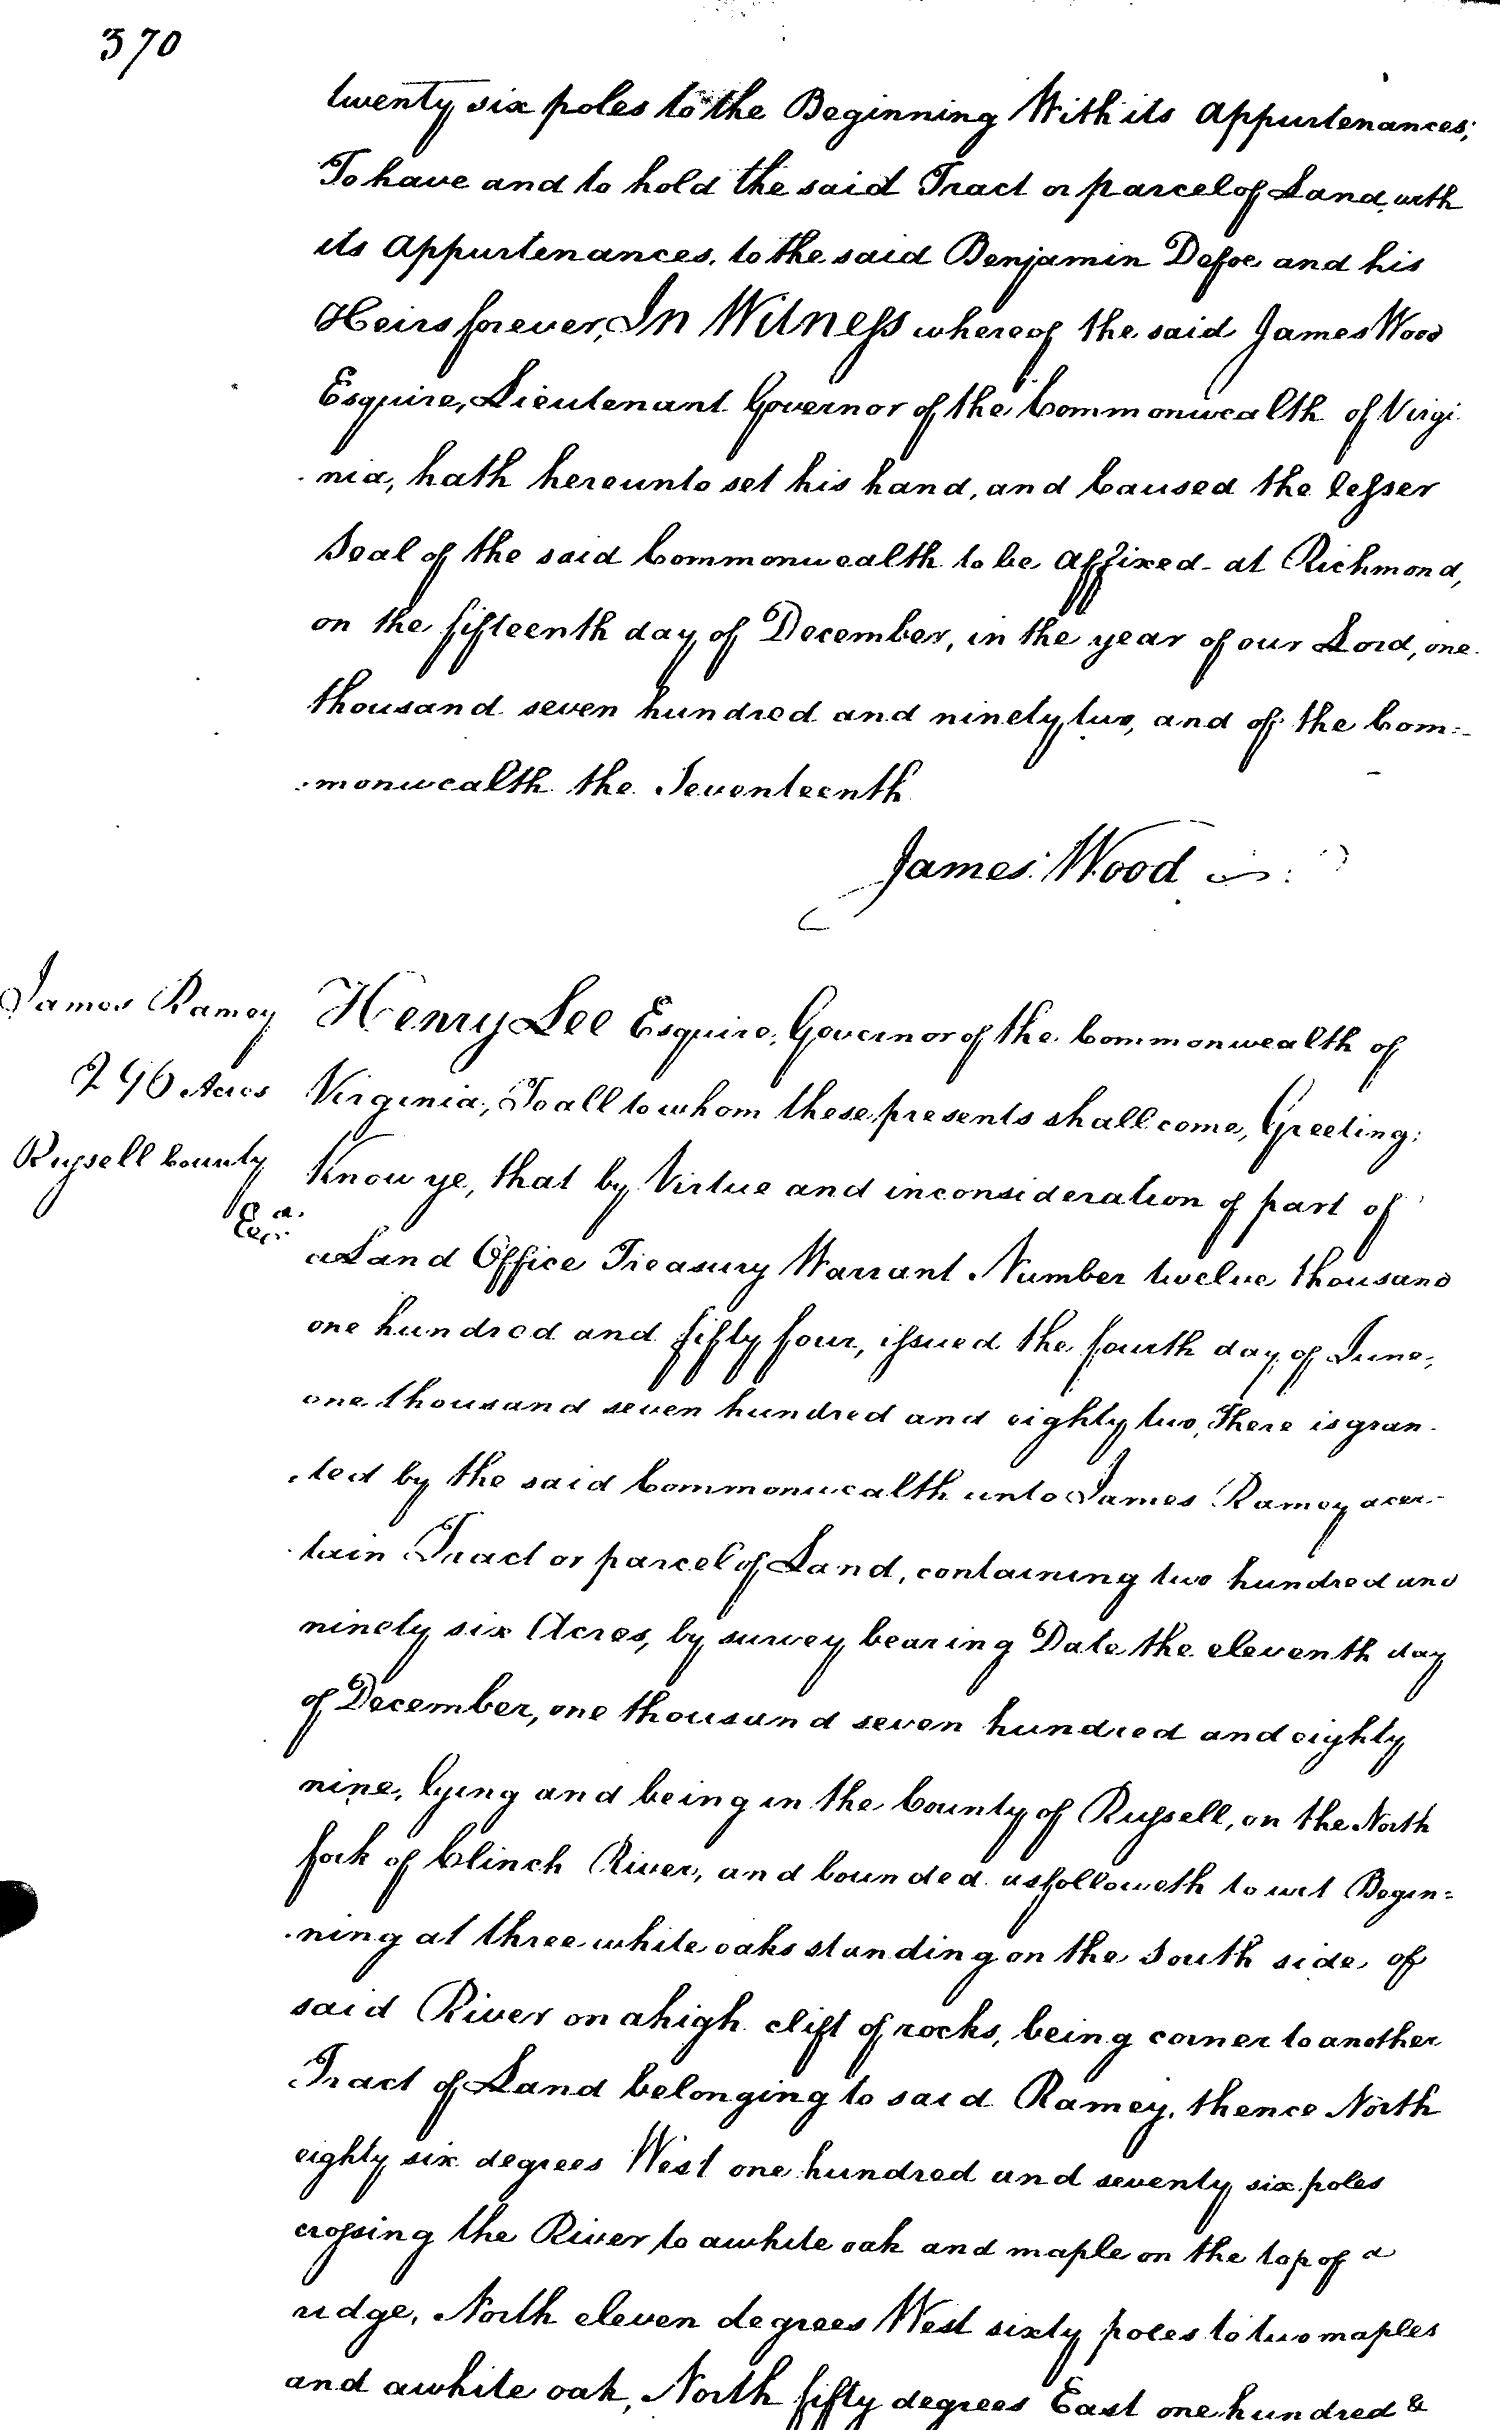 370
twenty six poles to the Beginning With its appurtenances;
To have and to hold the said Tract or parcel of Land, with
its appurtenances, to the said Benjamin Defoe and his
Heirs forever, In Witness whereof the said James Wood
Esquire, Lieutenant Governor of the Commonwealth of Virgi
nia, hath hereunto set his hand, and Caused the lesser
Seal of the said Commonwealth to be affixed at Richmond,
on the fifteenth day of December, in the year of our Lord, one
thousand seven hundred and ninety two, and of the Com=
monwealth the Seventeenth
James Wood
James Ramey
296 Acres
Russell County
Henry Lee Esquire, Governor of the Commonwealth of
Virginia, To all to whom these presents shall come, Greeting:
Know ye, that by Virtue and in consideration of part of
a Land Office Treasury Warrant Number twelve thousand
one hundred and fifty four, issued the fourth day of June,
one thousand seven hundred and eighty two, There is gran
ted by the said Commonwealth unto James Ramey a cer-
tain Tract or parcel of Land, containing two hundred and
ninety six Acres, by survey bearing Date the eleventh day
of December, one thousand seven hundred and eighty
nine, lying and being in the County of Russell, on the North
fork of Clinch River, and bounded as followeth to wit Begin=
ning at three white oaks standing on the South side of
said River on a high clift of rocks, being corner to another
Tract of Land belonging to said Ramey, thence North
eighty six degrees West one hundred and seventy six poles
crossing the River to a white oak and maple on the top of a
ridge, North eleven degrees West sixty poles to two maples
and a white oak, North fifty degrees East one hundred &